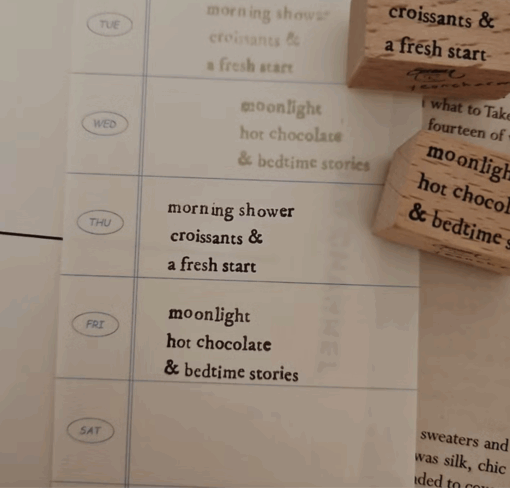 TUE
morning shower
croissants &
a fresh start
WED
moonlight
hot chocolate
& bedtime stories
THU
morning shower
croissants &
a fresh start
FRI
moonlight
hot chocolate
& bedtime stories
SAT
croissants &
a fresh start
what to Take
fourteen of
moonligh
hot chocol
& bedtime s
sweaters and
was silk, chic
ded to